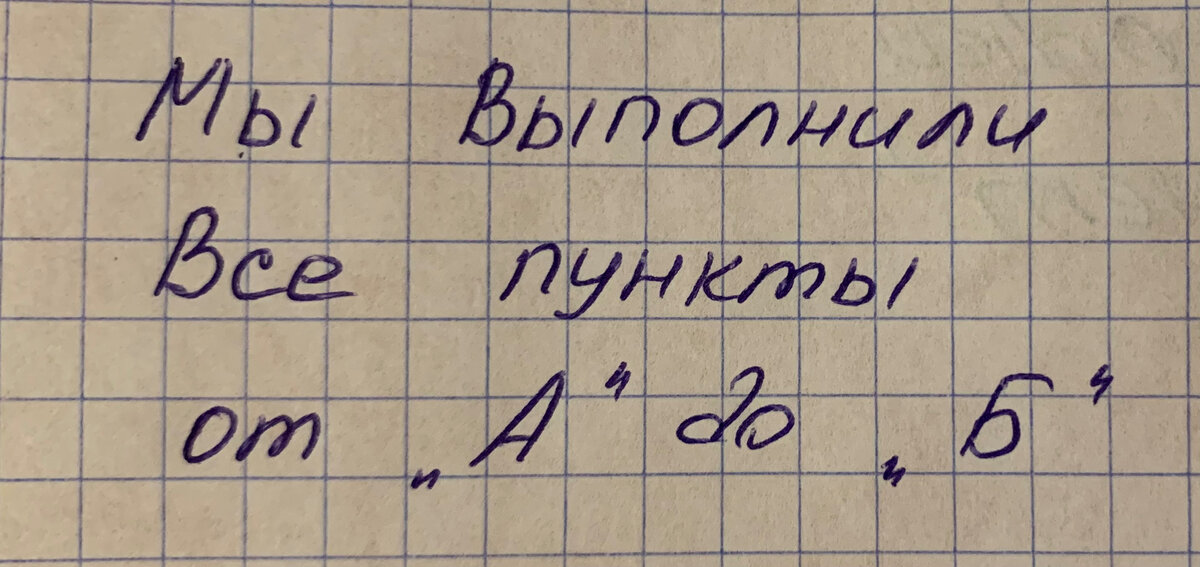 Мы Выполнили
Все пункты
от „А“ до „Б“